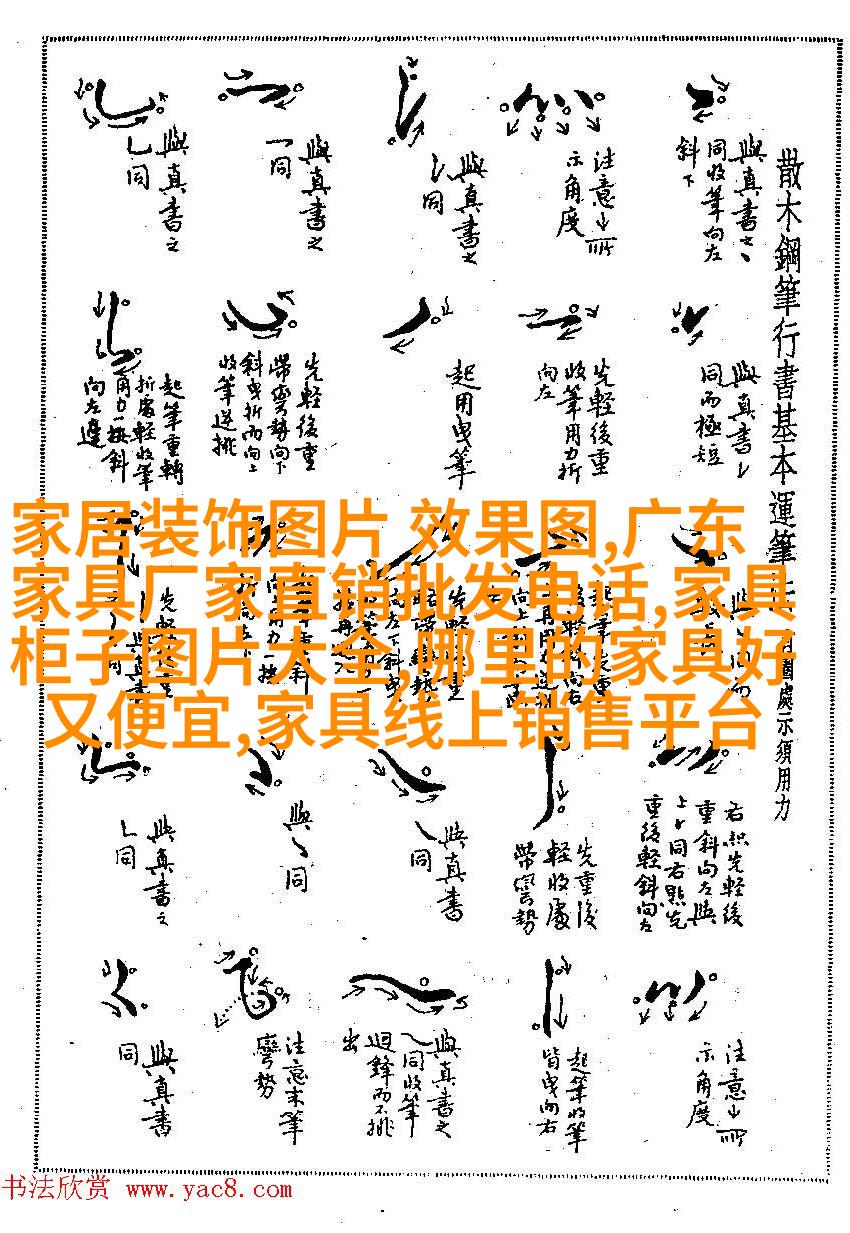 散木鋼筆行書基本運筆
圈處示須用力
與真書之丶
同收筆向左
斜下
注意山所
示角度
與真書之
㇄同
與真書之
一同
與真書之
㇄同
與真書
同而極短
先輕後重
收筆用力折
向左
起用曳筆
先輕後重
帶彎勢向下
斜曳折而向上
收筆逆挑
起筆重轉
折處輕收筆
用力一撇斜
向左邊
家居装饰图片 效果图,广东
家具厂家直销批发电话,家具
柜子图片大全,哪里的家具好
又便宜,家具线上销售平台
右點先輕後
重斜向左與
上同右點先
重後輕斜向左
先重後
輕收處
帶彎勢
與真書
㇏同
與㇏同
與真書之
㇄同
注意山所
示角度
起筆收筆
皆曳向右
與真書之
㇏同收筆
迴鋒而不挑
出
注意末筆
彎勢
與真書
同
书法欣赏 www.yac8.com